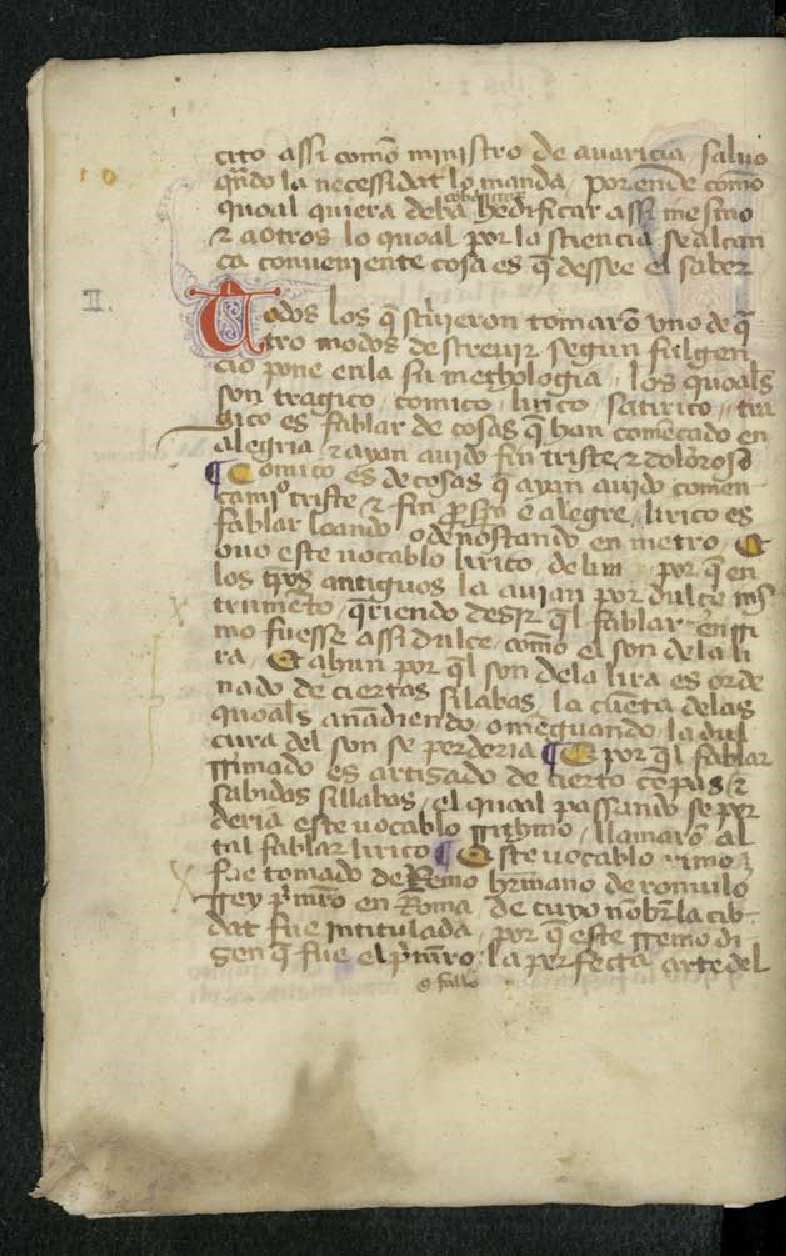 cito assi como ministro de auaricia saluo
qndo la necessidat lo manda / por ende como
quoal quiera deba hedificar assi mesmo
& a otros lo quoal por la sciencia se alcan
ça conueniente cosa es q̄ dessee el saber
II.
Todos los q̄ scͥuieron tomarō vno de q̄
tro modos de screuir segun fulgen
cio pone en la su methologia / los quoals
son tragico / comico / lirico / satirico // tra
gico es fablar de cosas q̄ han comēcado en
alegria / & ayan auido fin triste & doloroso
¶ Comico es de cosas q̄ ayan auido comen
camiᵒ triste & fin ꝓspo e alegre / lirico es
fablar loando o denostando en metro / Et
ouo este uocablo lirico de por q̄ en
los tpos antiguos la auian por dulçe ins
trumēto / q̄riendo desir q̄l fablar en rri
mo fuesse assi dulce como el son de la li
ra / Et ahun por q̄l son dela lira es orde
nado de ciertas silabas / la cuēta delas
quoals anadiendo o menguando / la dul
cura del son se perderia ¶ E por q̄l fablar
rrimado es artizado de cierto cōpas &
sabidos sillabas / el quoal passando se per
deria este uocablo rrithmo / llamarō al
tal fablar lirico ¶ Este uocablo rimo
fue tomado de Remo hrmano de romulo
rrey pͥmro en Roma / de cuyo nōbr la cib
dat fue intitulada / por q̄ este rremo di
zen q̄ fue el pͥmro / la perfecta arte del
q fallo